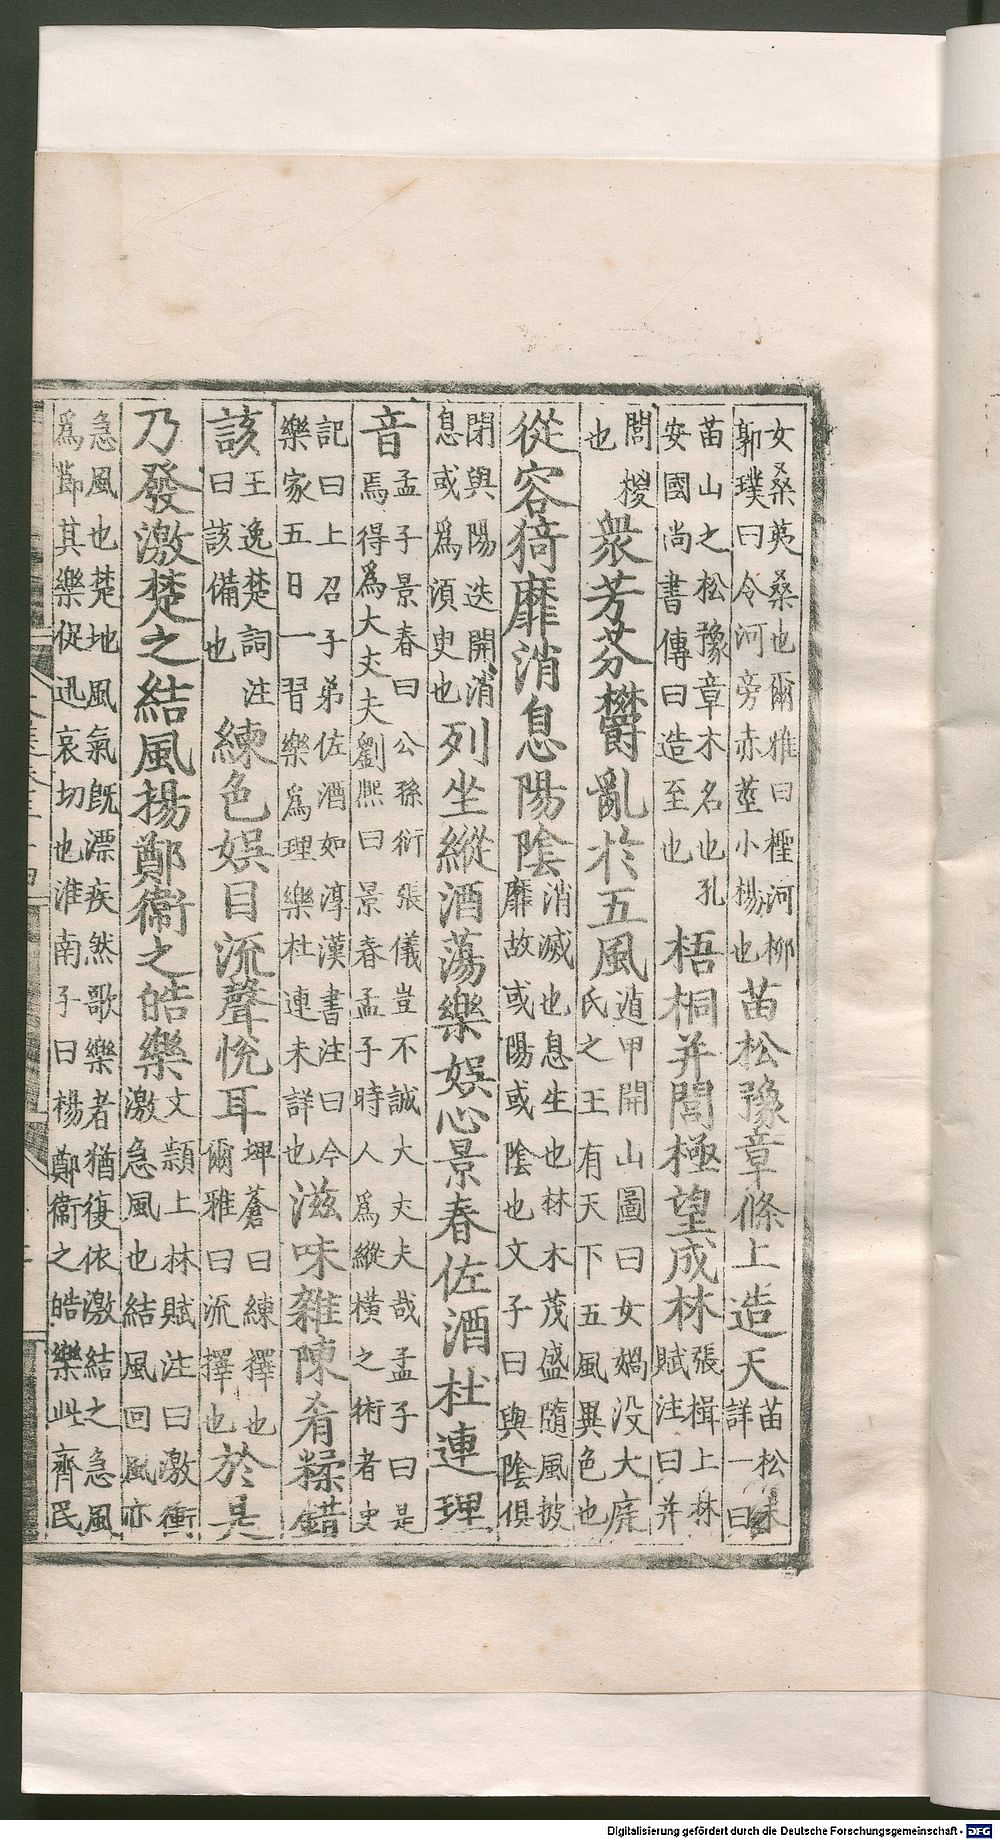 女桑荑桑也爾雅曰檉河柳郭璞曰今河旁赤莖小楊也苗松豫章條上造天苗松未詳一曰
苗山之松豫章木名也孔安國尚書傳曰造至也梧桐并閭極望成林張揖上林賦注曰并
閭椶也衆芳芬欝亂於五風遁甲開山圖曰女媧没大庭氏之王有天下五風異色也
從容猗靡消息陽陰消滅也息生也林木茂盛隨風披靡故或陽或陰也文子曰與陰俱
閉與陽迭開消息或爲湏臾也列坐縱酒蕩樂娛心景春佐酒杜連理
音孟子景春曰公孫衍張儀豈不誠大丈夫哉孟子曰是焉得爲大丈夫劉熈曰景春孟子時人爲縱橫之術者史
記曰上召子弟佐酒如淳漢書注曰今樂家五日一習樂爲理樂杜連未詳也滋味雜陳肴糅錯
該王逸楚詞注曰該備也練色娛目流聲恱耳埤蒼曰練擇也爾雅曰流擇也於是
乃發激楚之結風揚鄭衛之皓樂文頴上林賦注曰激衝激急風也結風回風亦
急風也楚地風氣既漂疾然歌樂者猶復依激結之急風爲節其樂促迅哀切也淮南子曰楊鄭衛之皓樂此齊民
Digitalisierung gefördert durch die Deutsche Forschungsgemeinschaft - DFG